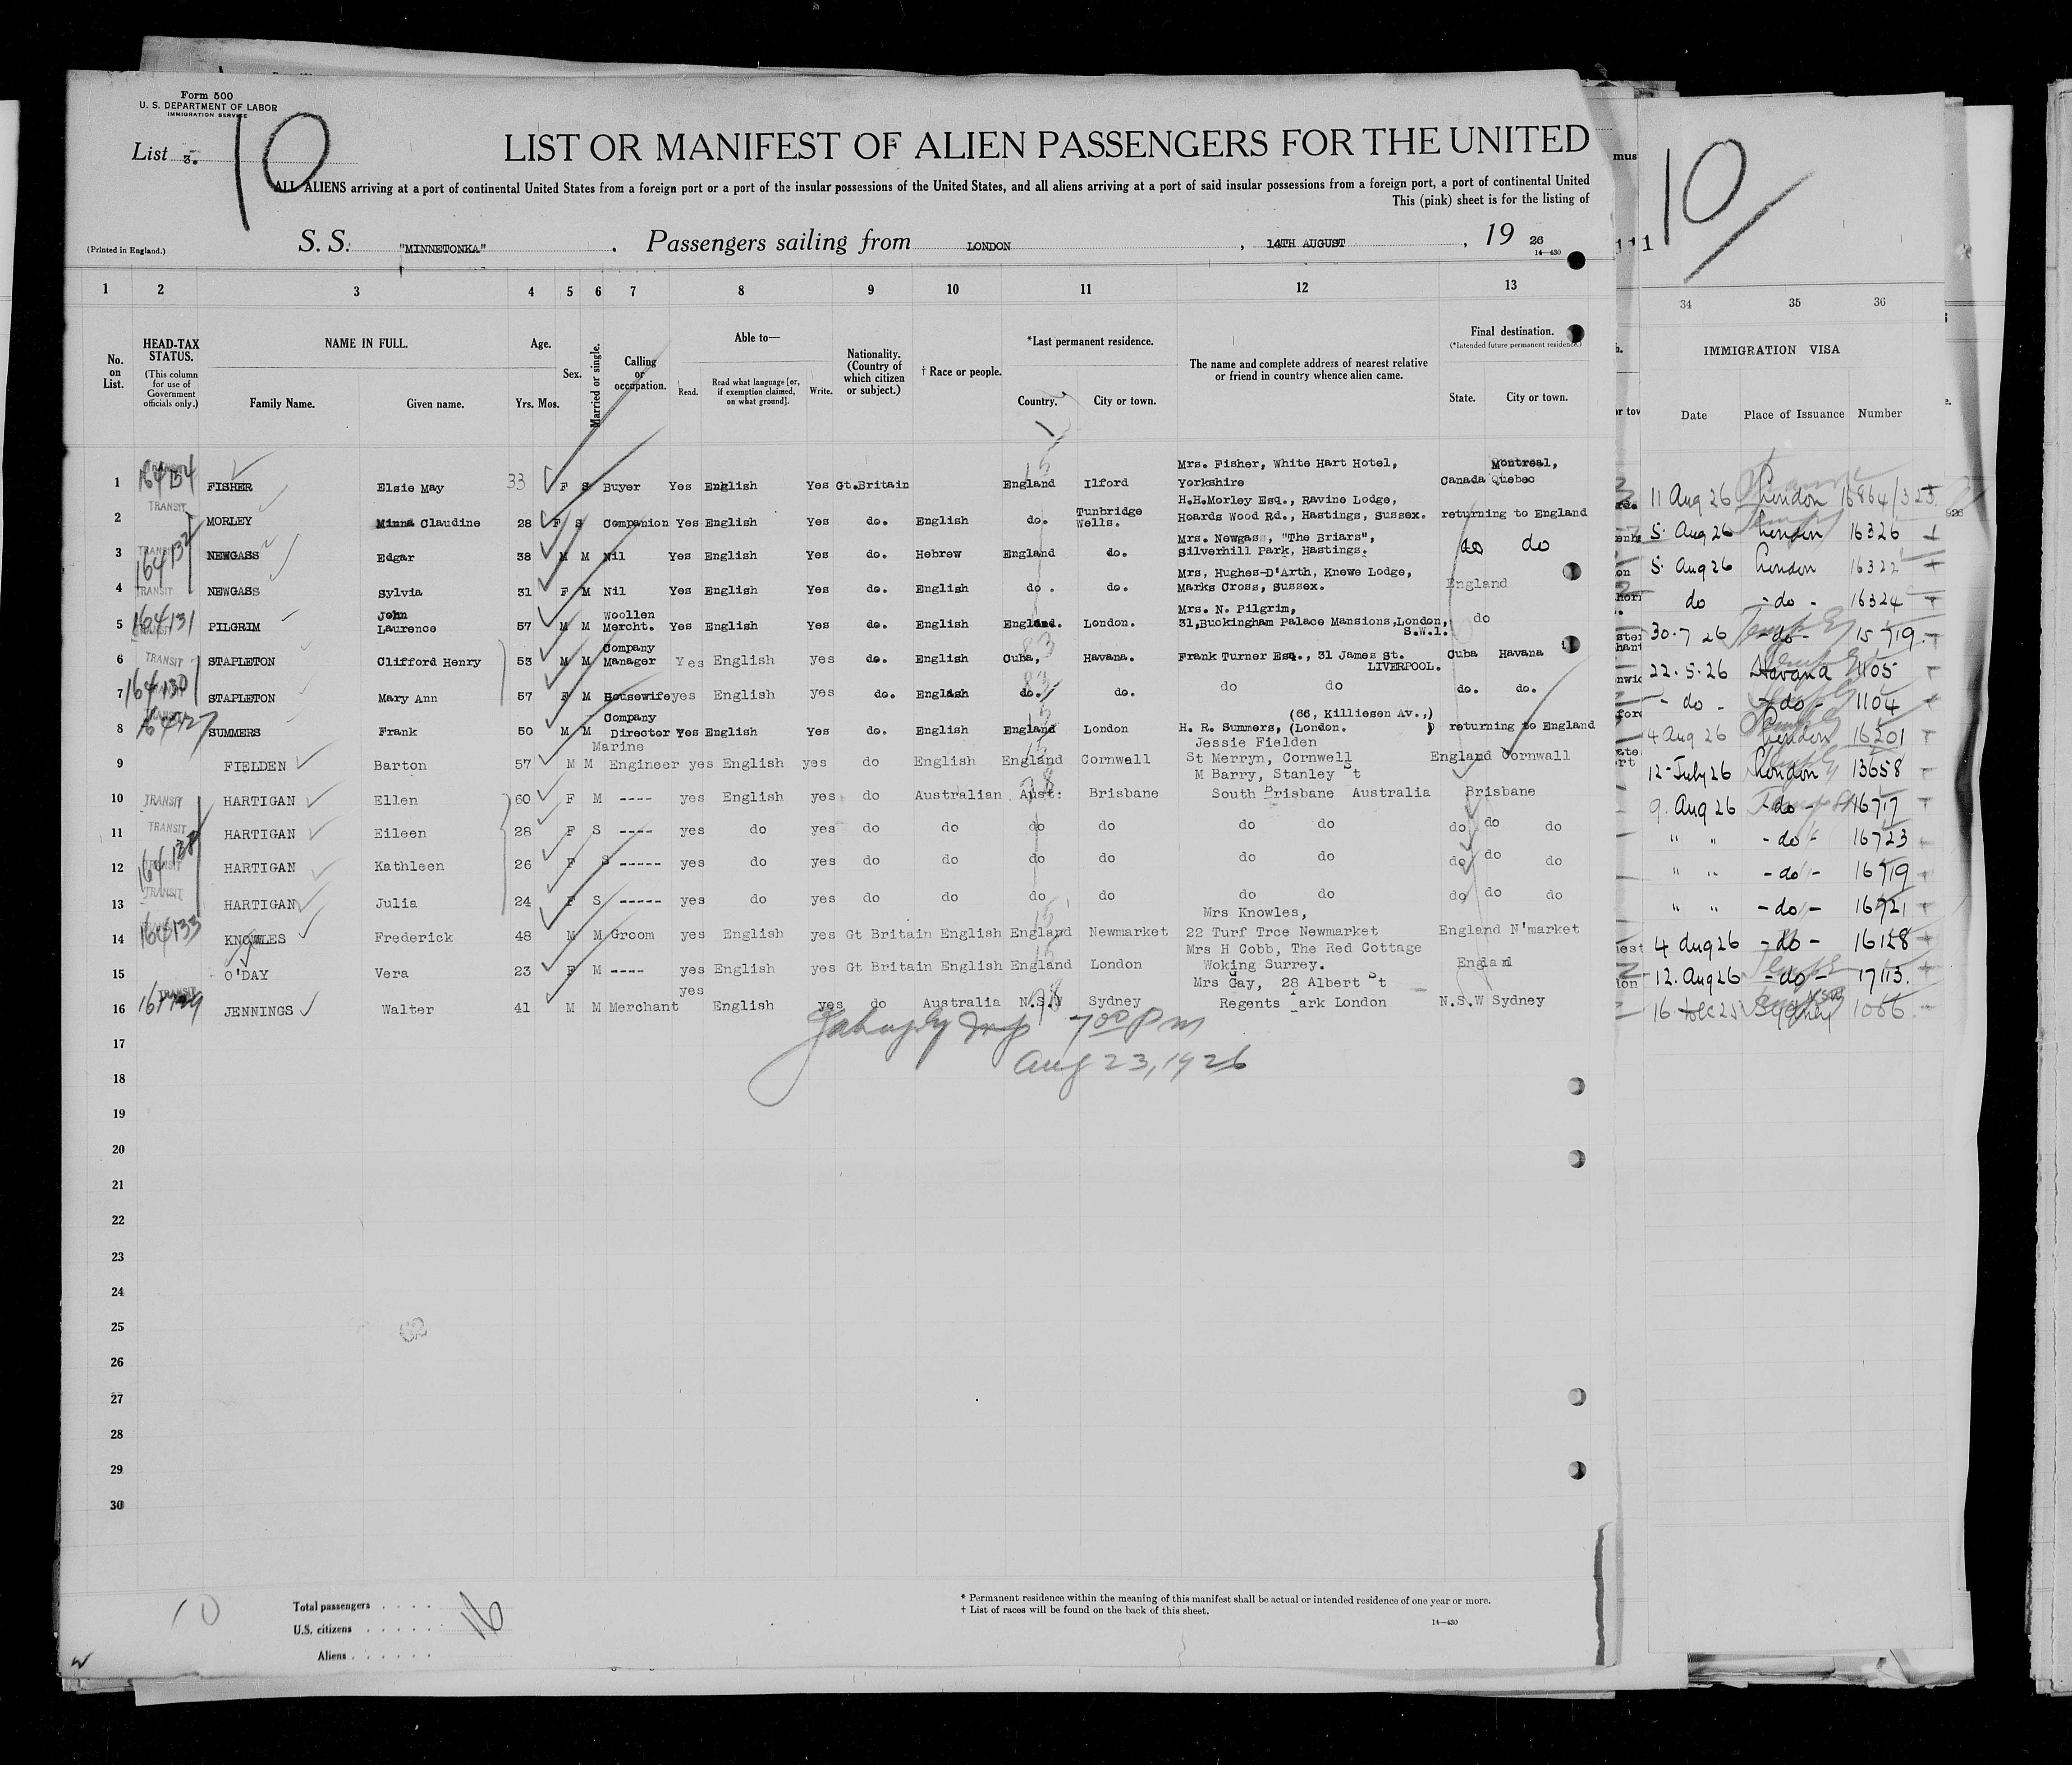 Form 500
U. S. DEPARTMENT OF LABOR
IMMIGRATION SERVICE
List 3.
10
LIST OR MANIFEST OF ALIEN PASSENGERS FOR THE UNITED
ALL ALIENS arriving at a port of continental United States from a foreign port or a port of the insular possessions of the United States, and all aliens arriving at a port of said insular possessions from a foreign port, a port of continental United
This (pink) sheet is for the listing of
(Printed in England.)
S. S. "MINNETONKA" . Passengers sailing from LONDON , 14TH AUGUST , 19 26
14—430
10
111
1 2 3 4 5 6 7 8 9 10 11 12 13 34 35 36
No. on List.
HEAD-TAX STATUS.
(This column for use of Government officials only.)
NAME IN FULL.
Family Name. Given name.
Age.
Yrs. Mos.
Sex.
Married or single.
Calling or occupation.
Able to—
Read. Read what language [or, if exemption claimed, on what ground]. Write.
Nationality. (Country of which citizen or subject.)
† Race or people.
*Last permanent residence.
Country. City or town.
The name and complete address of nearest relative or friend in country whence alien came.
Final destination.
(*Intended future permanent residence.)
State. City or town.
IMMIGRATION VISA
Date Place of Issuance Number
Mrs. Fisher, White Hart Hotel, Montreal,
1 FISHER Elsie May 33 F S Buyer Yes English Yes Gt.Britain England Ilford Yorkshire Canada Quebec 11 Aug 26 London 16864/325
TRANSIT H.H.Morley Esq., Ravine Lodge,
2 MORLEY Minna Claudine 28 F S Companion Yes English Yes do. English do. Tunbridge Wells. Hoards Wood Rd., Hastings, Sussex. returning to England 5 Aug 26 London 16326
Mrs. Newgass, "The Briars",
3 164132 NEWGASS Edgar 38 M M Nil Yes English Yes do. Hebrew England do. Silverhill Park, Hastings. do do 5 Aug 26 London 16322
Mrs, Hughes-D'Arth, Knewe Lodge,
4 TRANSIT NEWGASS Sylvia 31 F M Nil Yes English Yes do. English do. do. Marks Cross, Sussex. England do - do - 16324
John Woollen Mrs. N. Pilgrim,
5 164131 PILGRIM Laurence 57 M M Mercht. Yes English Yes do. English England. London. 31,Buckingham Palace Mansions,London, S.W.1. do 30.7 26 - do - 15719
Company
6 TRANSIT STAPLETON Clifford Henry 53 M M Manager Yes English yes do. English Cuba, Havana. Frank Turner Esq., 31 James St. LIVERPOOL. Cuba Havana 22.5.26 Havana 1105
7 164130 STAPLETON Mary Ann 57 F M Housewife yes English yes do. English do. do. do do do. do. - do - - do - 1104
Company (66, Killiesen Av.,)
8 SUMMERS Frank 50 M M Director Yes English Yes do. English England London H. R. Summers, (London. ) returning to England 4 Aug 26 London 16201
Marine Jessie Fielden
9 FIELDEN Barton 57 M M Engineer yes English yes do English England Cornwell St Merryn, Cornwell England Cornwall 12-July 26 London 13658
M Barry, Stanley St
10 TRANSIT HARTIGAN Ellen 60 F M ---- yes English yes do Australian Aust: Brisbane South Brisbane Australia Brisbane 9. Aug 26 - do - 16717
11 TRANSIT HARTIGAN Eileen 28 F S ---- yes do yes do do do do do do do do do " " - do - 16723
12 TRANSIT HARTIGAN Kathleen 26 F S ----- yes do yes do do do do do do do do do " " - do - 16719
13 TRANSIT HARTIGAN Julia 24 F S ----- yes do yes do do do do do do do do do " " - do - 16721
Mrs Knowles,
14 164133 KNOWLES Frederick 48 M M Groom yes English yes Gt Britain English England Newmarket 22 Turf Tree Newmarket England N'market 4 Aug 26 - do - 16128
Mrs H Cobb, The Red Cottage
15 O'DAY Vera 23 F M ---- yes English yes Gt Britain English England London Woking Surrey. England 12. Aug 26 - do - 17113.
yes Mrs Gay, 28 Albert St
16 TRANSIT JENNINGS Walter 41 M M Merchant English yes do Australia N.S.W Sydney Regents Park London N.S.W Sydney 16 Dec 25 Sydney 1086
17 7 00 P m
18 Aug 23, 1926
19
20
21
22
23
24
25
26
27
28
29
30
10
Total passengers . . . . 16
U.S. citizens . . . . .
Aliens . . . . . .
* Permanent residence within the meaning of this manifest shall be actual or intended residence of one year or more.
† List of races will be found on the back of this sheet.
14—430